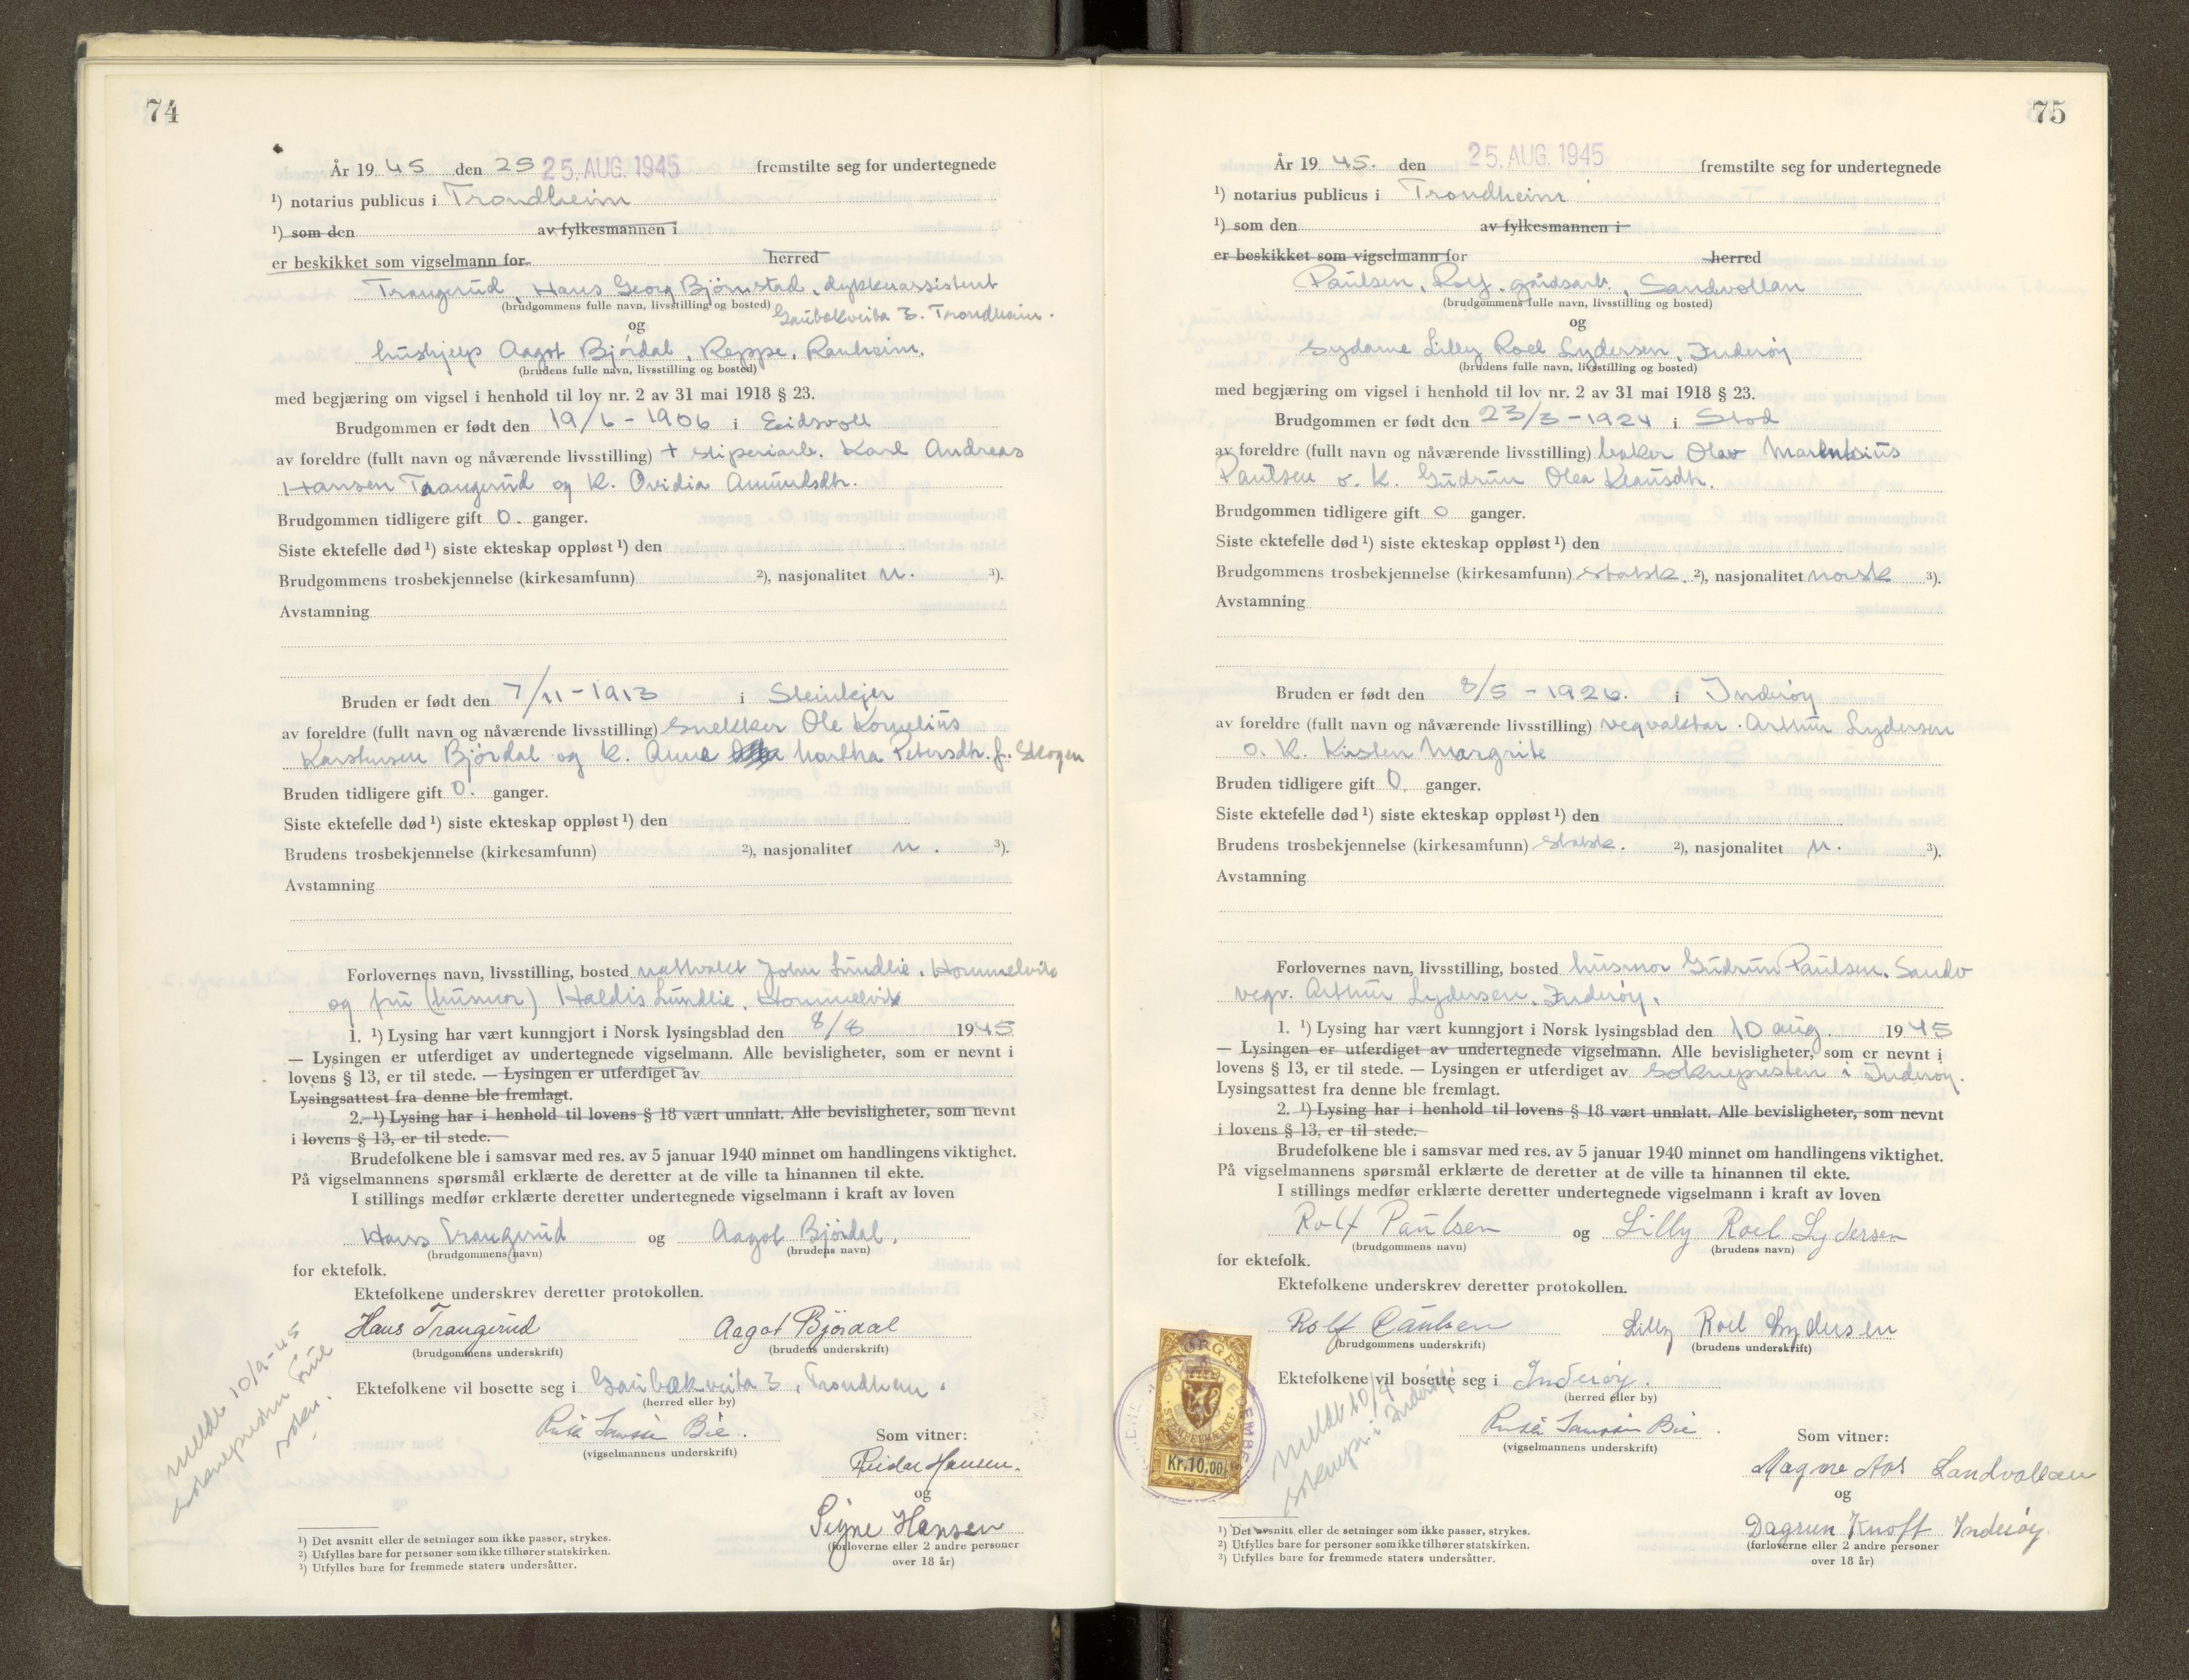 74
År 19 45 den 25 25. AUG. 1945 fremstilte seg for undertegnede
¹) notarius publicus i Trondheim
¹) som den av fylkesmannen i
er beskikket som vigselmann for herred
Traugerud, Hans Georg Bjørnstad, dykkerassistent
(brudgommens fulle navn, livsstilling og bosted) Gaubekveita 3. Trondheim.
og
hushjelp Aagot Bjørdal, Reppe, Ranheim.
(brudens fulle navn, livsstilling og bosted)
med begjæring om vigsel i henhold til lov nr. 2 av 31 mai 1918 § 23.
Brudgommen er født den 19/6 - 1906 i Eidsvoll
av foreldre (fullt navn og nåværende livsstilling) + sliperiarb. Karl Andreas
Hansen Traugerud og k. Ovidia Amundsdtr.
Brudgommen tidligere gift 0. ganger.
Siste ektefelle død ¹) siste ekteskap oppløst ¹) den
Brudgommens trosbekjennelse (kirkesamfunn) ²), nasjonalitet n. ³).
Avstamning
Bruden er født den 7/11 - 1913 i Steinkjer
av foreldre (fullt navn og nåværende livsstilling) snekker Ole Kornelius
Karstensen Bjørdal og k. Anne Martha Petersdtr. f. Skogen
Bruden tidligere gift 0. ganger.
Siste ektefelle død ¹) siste ekteskap oppløst ¹) den
Brudens trosbekjennelse (kirkesamfunn) ²), nasjonalitet n. ³).
Avstamning
Forlovernes navn, livsstilling, bosted nattvakt John Lundlie, Hommelvik
og fru (husmor) Haldis Lundlie, Hommelvik
1. ¹) Lysing har vært kunngjort i Norsk lysingsblad den 8/8 1945
— Lysingen er utferdiget av undertegnede vigselmann. Alle bevisligheter, som er nevnt i
lovens § 13, er til stede. — Lysingen er utferdiget av
Lysingsattest fra denne ble fremlagt.
2. ¹) Lysing har i henhold til lovens § 18 vært unnlatt. Alle bevisligheter, som nevnt
i lovens § 13, er til stede. —
Brudefolkene ble i samsvar med res. av 5 januar 1940 minnet om handlingens viktighet.
På vigselmannens spørsmål erklærte de deretter at de ville ta hinannen til ekte.
I stillings medfør erklærte deretter undertegnede vigselmann i kraft av loven
Hans Traugerud og Aagot Bjørdal.
(brudgommens navn) (brudens navn)
for ektefolk.
Ektefolkene underskrev deretter protokollen.
Hans Traugerud Aagot Bjørdal
(brudgommens underskrift) (brudens underskrift)
Ektefolkene vil bosette seg i Gaubekveita 3, Trondheim.
(herred eller by)
Bie.
(vigselmannens underskrift)
Som vitner:
Reidar Hansen.
og
Signe Hansen
(forloverne eller 2 andre personer
over 18 år)
meldt 10/9-45
soknepresten
¹) Det avsnitt eller de setninger som ikke passer, strykes.
²) Utfylles bare for personer som ikke tilhører statskirken.
³) Utfylles bare for fremmede staters undersåtter.
75
År 19 45. den 25. AUG. 1945 fremstilte seg for undertegnede
¹) notarius publicus i Trondheim
¹) som den av fylkesmannen i
er beskikket som vigselmann for herred
Paulsen, Rolf, gårdsarb., Sandvollan
(brudgommens fulle navn, livsstilling og bosted)
og
sydame Lilly Roel Lydersen, Inderøy
(brudens fulle navn, livsstilling og bosted)
med begjæring om vigsel i henhold til lov nr. 2 av 31 mai 1918 § 23.
Brudgommen er født den 23/3 - 1924 i Stod
av foreldre (fullt navn og nåværende livsstilling) baker Olav Marentsius
Paulsen o. k. Gudrun Olea Klausdtr.
Brudgommen tidligere gift 0 ganger.
Siste ektefelle død ¹) siste ekteskap oppløst ¹) den
Brudgommens trosbekjennelse (kirkesamfunn) statsk. ²), nasjonalitet norsk ³).
Avstamning
Bruden er født den 8/5 - 1926. i Inderøy
av foreldre (fullt navn og nåværende livsstilling) vegvokter Arthur Lydersen
o. k. Kirsten Margrite
Bruden tidligere gift 0. ganger.
Siste ektefelle død ¹) siste ekteskap oppløst ¹) den
Brudens trosbekjennelse (kirkesamfunn) statsk. ²), nasjonalitet n. ³).
Avstamning
Forlovernes navn, livsstilling, bosted husmor Gudrun Paulsen, Sandv
vegv. Arthur Lydersen, Inderøy.
1. ¹) Lysing har vært kunngjort i Norsk lysingsblad den 10 aug. 1945
— Lysingen er utferdiget av undertegnede vigselmann. Alle bevisligheter, som er nevnt i
lovens § 13, er til stede. — Lysingen er utferdiget av soknepresten i Inderøy.
Lysingsattest fra denne ble fremlagt.
2. ¹) Lysing har i henhold til lovens § 18 vært unnlatt. Alle bevisligheter, som nevnt
i lovens § 13, er til stede. —
Brudefolkene ble i samsvar med res. av 5 januar 1940 minnet om handlingens viktighet.
På vigselmannens spørsmål erklærte de deretter at de ville ta hinannen til ekte.
I stillings medfør erklærte deretter undertegnede vigselmann i kraft av loven
Rolf Paulsen og Lilly Roel Lydersen
(brudgommens navn) (brudens navn)
for ektefolk.
Ektefolkene underskrev deretter protokollen.
Rolf Paulsen Lilly Roel Lydersen
(brudgommens underskrift) (brudens underskrift)
Ektefolkene vil bosette seg i Inderøy.
(herred eller by)
Bie
(vigselmannens underskrift)
Som vitner:
Magne Aas Sandvollan
og
Dagrun Knoff Inderøy.
(forloverne eller 2 andre personer
over 18 år)
NORGE
STEMPELMERKE
Kr. 10.00
meldt 10/9
sokнepr. i Inderøy
¹) Det avsnitt eller de setninger som ikke passer, strykes.
²) Utfylles bare for personer som ikke tilhører statskirken.
³) Utfylles bare for fremmede staters undersåtter.